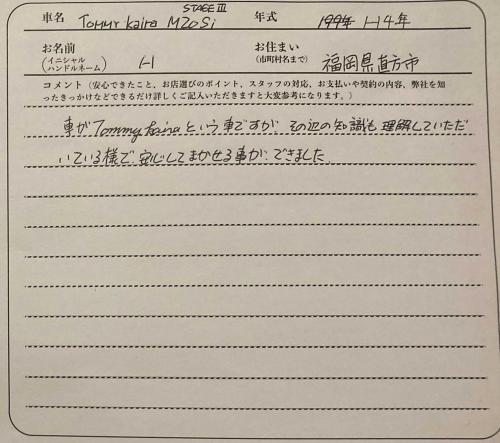 STAGE III
車名 Tommy kaira M20Si 年式 H14年
お名前 (イニシャル ハンドルネーム) H お住まい (市町村名まで) 福岡県直方市
コメント (安心できたこと、お店選びのポイント、スタッフの対応、お支払いや契約の内容、弊社を知
ったきっかけなどできるだけ詳しくご記入いただきますと大変参考になります。)
車がTommy kairaという車ですが、その辺の知識も理解していただ
いている様で、安心してまかせる事が、できました。